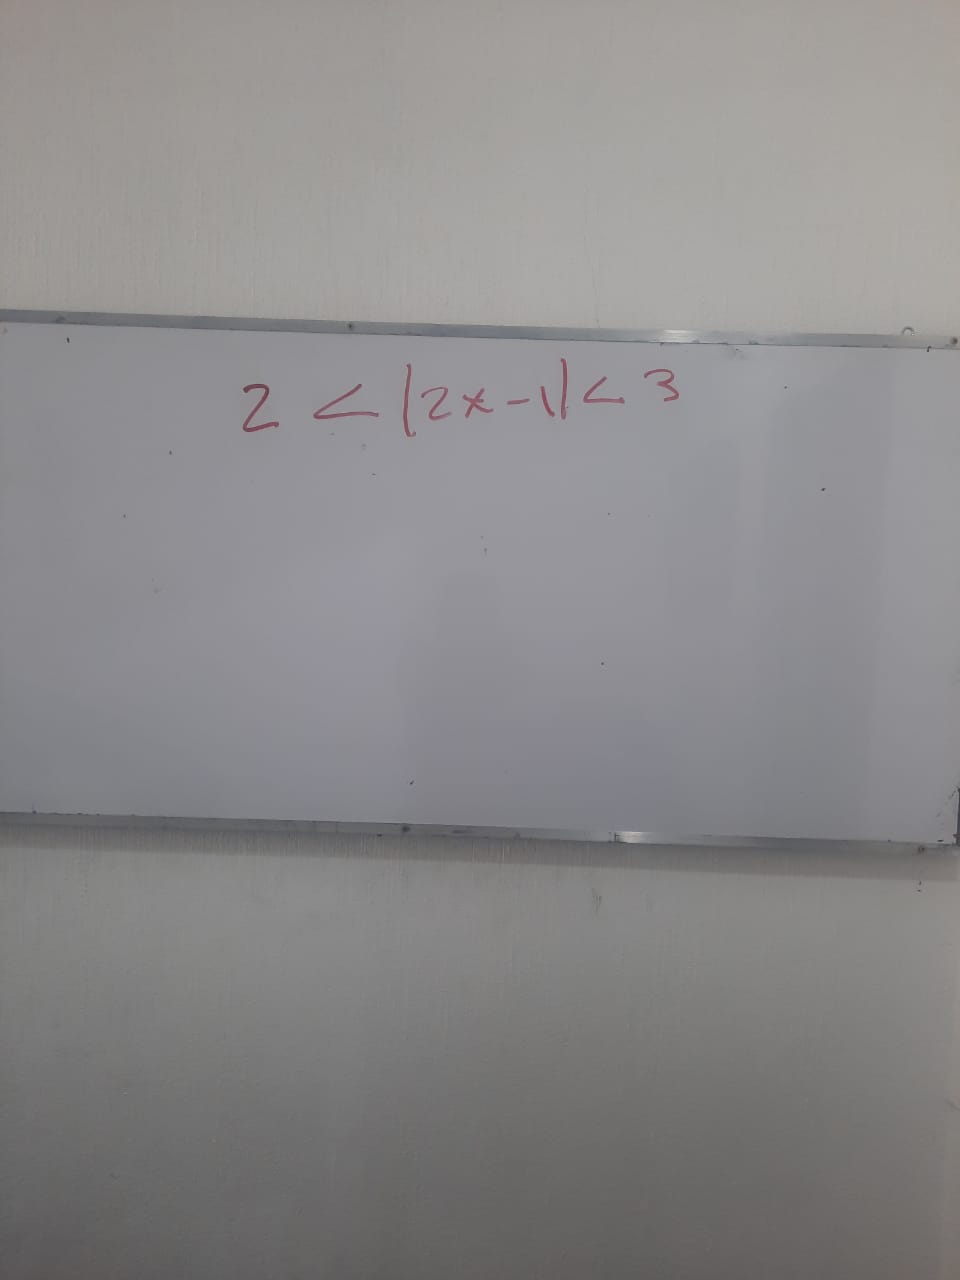 2 < |2x-1| < 3